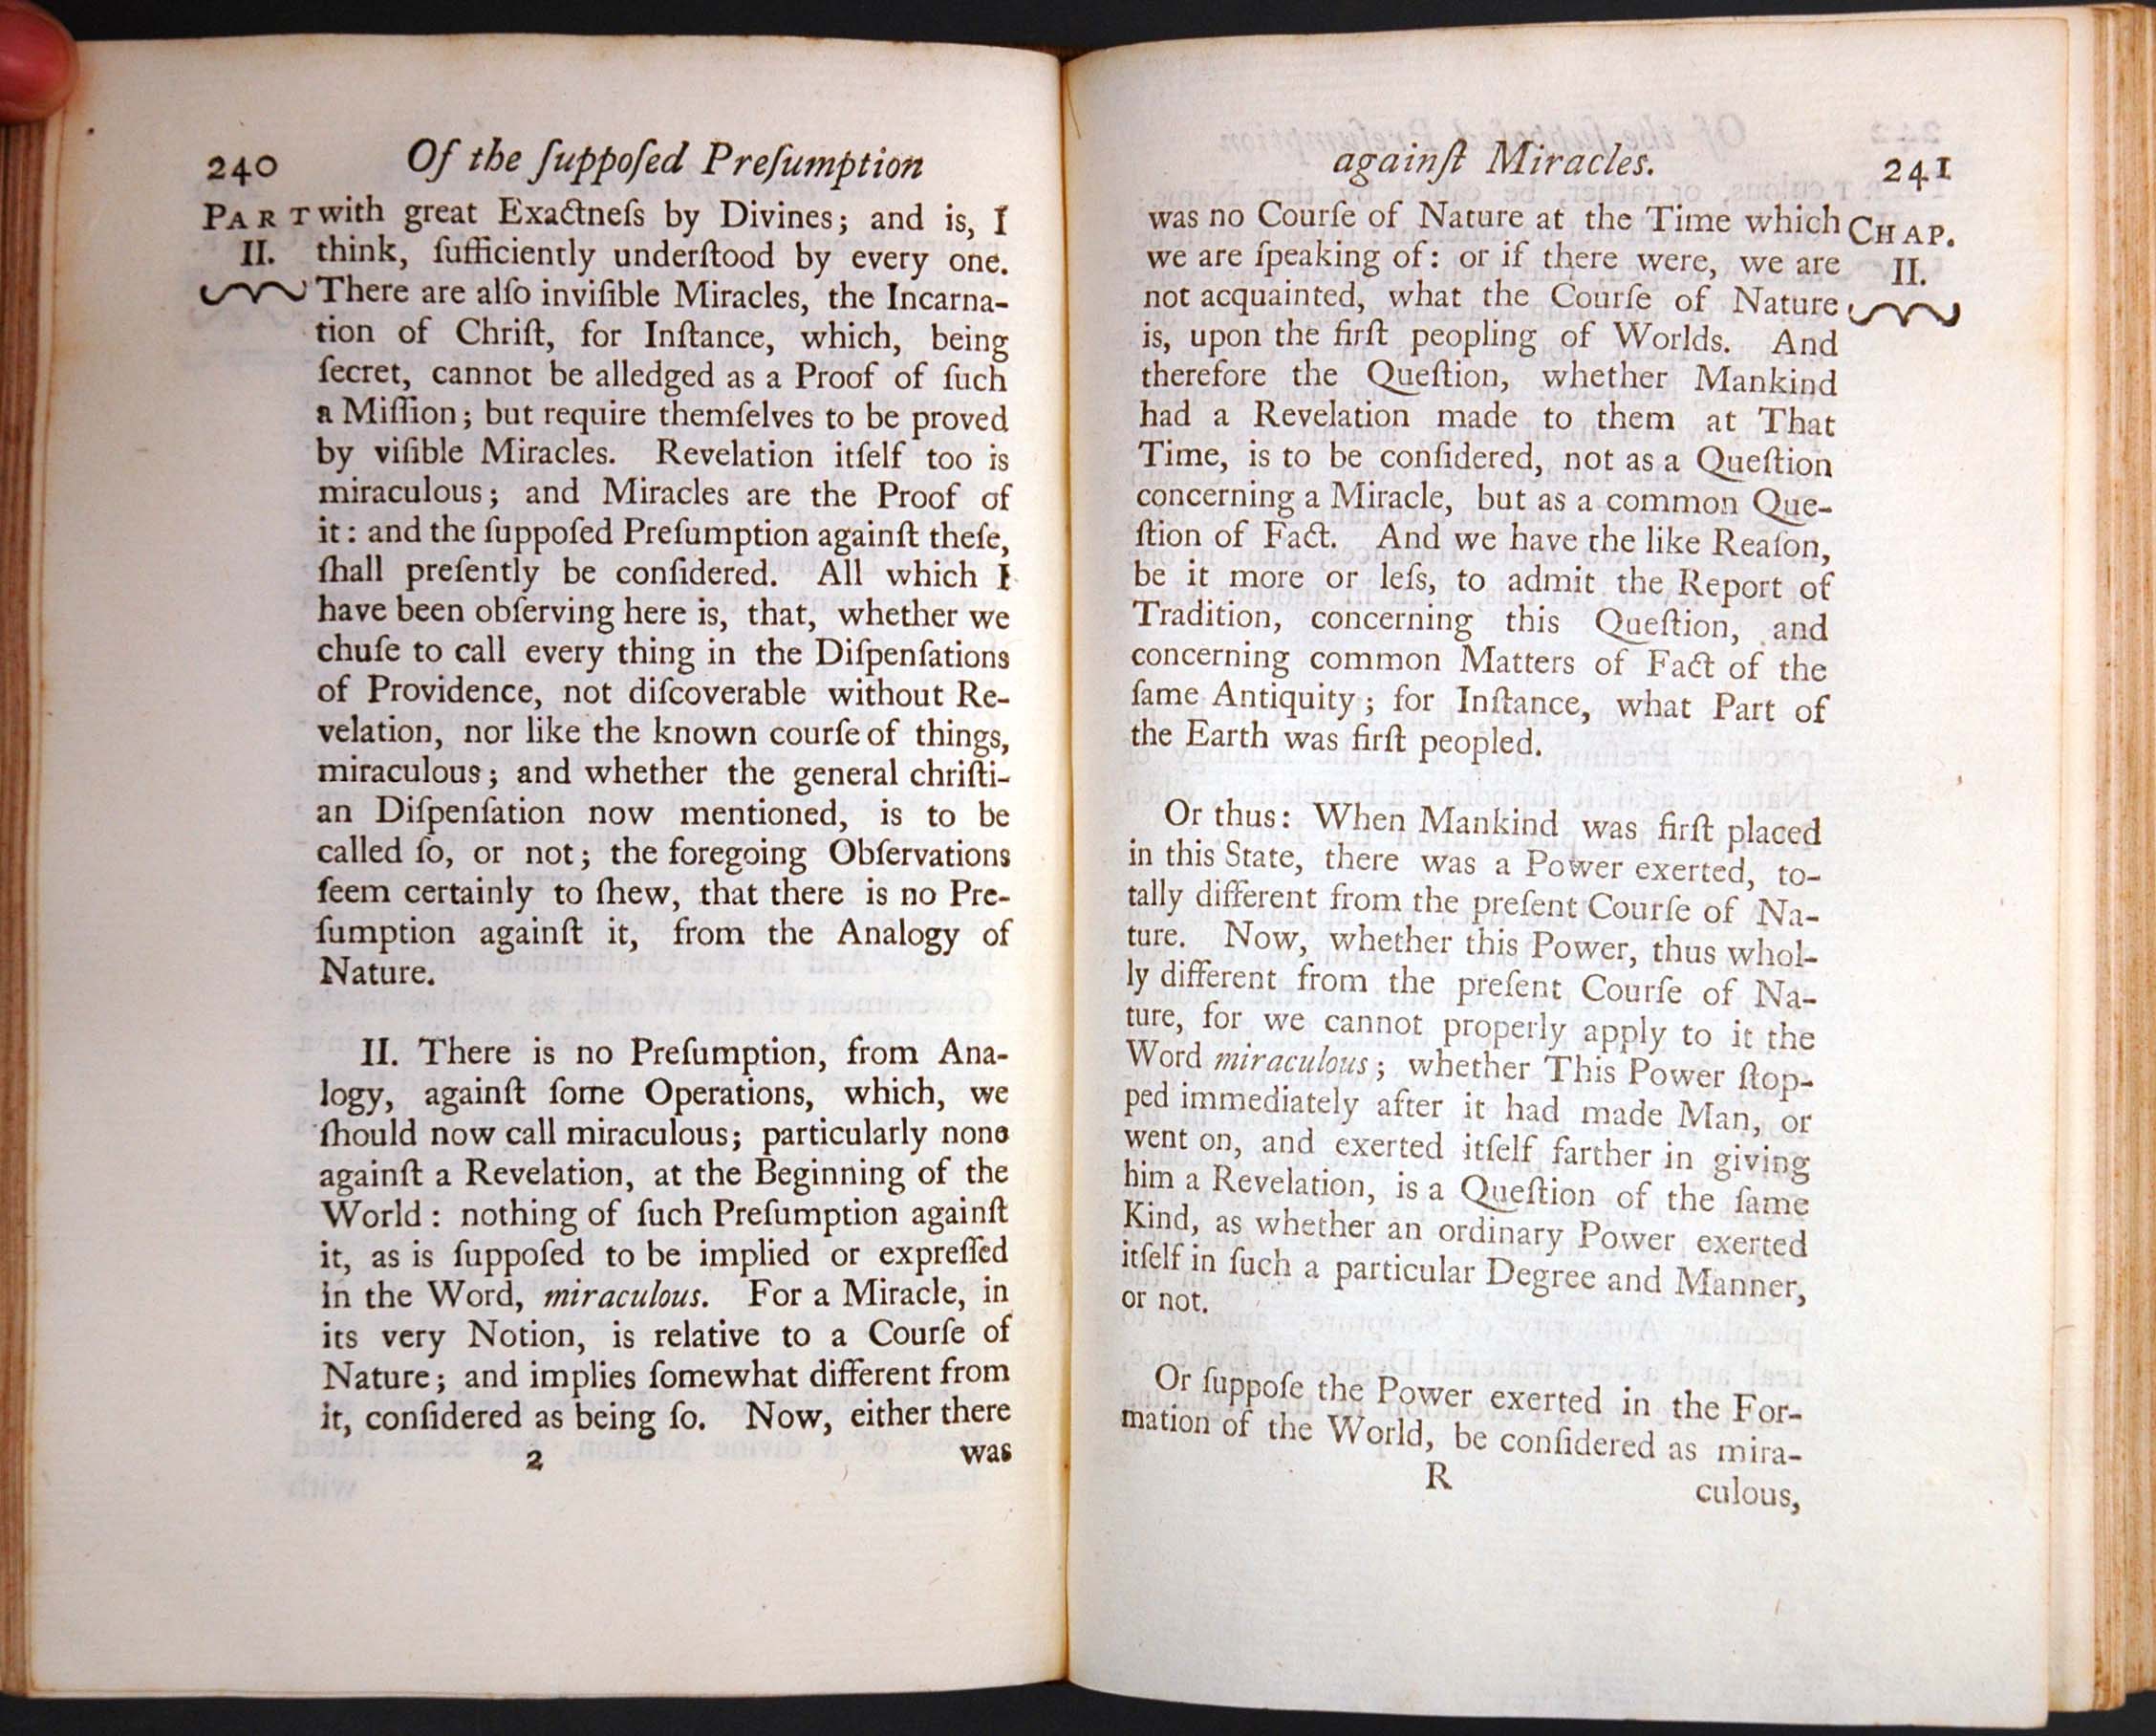 240
Of the ſuppoſed Preſumption
PART
II.
with great Exactneſs by Divines; and is, I
think, ſufficiently underſtood by every one.
There are alſo inviſible Miracles, the Incarna-
tion of Chriſt, for Inſtance, which, being
ſecret, cannot be alledged as a Proof of ſuch
a Miſſion; but require themſelves to be proved
by viſible Miracles. Revelation itſelf too is
miraculous; and Miracles are the Proof of
it: and the ſuppoſed Preſumption againſt theſe,
ſhall preſently be conſidered. All which I
have been obſerving here is, that, whether we
chuſe to call every thing in the Diſpenſations
of Providence, not diſcoverable without Re-
velation, nor like the known courſe of things,
miraculous; and whether the general chriſti-
an Diſpenſation now mentioned, is to be
called ſo, or not; the foregoing Obſervations
ſeem certainly to ſhew, that there is no Pre-
ſumption againſt it, from the Analogy of
Nature.
II. There is no Preſumption, from Ana-
logy, againſt ſome Operations, which, we
ſhould now call miraculous; particularly none
againſt a Revelation, at the Beginning of the
World: nothing of ſuch Preſumption againſt
it, as is ſuppoſed to be implied or expreſſed
in the Word, miraculous. For a Miracle, in
its very Notion, is relative to a Courſe of
Nature; and implies ſomewhat different from
it, conſidered as being ſo. Now, either there
2
was
againſt Miracles.
241
CHAP.
II.
was no Courſe of Nature at the Time which
we are ſpeaking of: or if there were, we are
not acquainted, what the Courſe of Nature
is, upon the firſt peopling of Worlds. And
therefore the Queſtion, whether Mankind
had a Revelation made to them at That
Time, is to be conſidered, not as a Queſtion
concerning a Miracle, but as a common Que-
ſtion of Fact. And we have the like Reaſon,
be it more or leſs, to admit the Report of
Tradition, concerning this Queſtion, and
concerning common Matters of Fact of the
ſame Antiquity; for Inſtance, what Part of
the Earth was firſt peopled.
Or thus: When Mankind was firſt placed
in this State, there was a Power exerted, to-
tally different from the preſent Courſe of Na-
ture. Now, whether this Power, thus whol-
ly different from the preſent Courſe of Na-
ture, for we cannot properly apply to it the
Word miraculous; whether This Power ſtop-
ped immediately after it had made Man, or
went on, and exerted itſelf farther in giving
him a Revelation, is a Queſtion of the ſame
Kind, as whether an ordinary Power exerted
itſelf in ſuch a particular Degree and Manner,
or not.
Or ſuppoſe the Power exerted in the For-
mation of the World, be conſidered as mira-
R
culous,